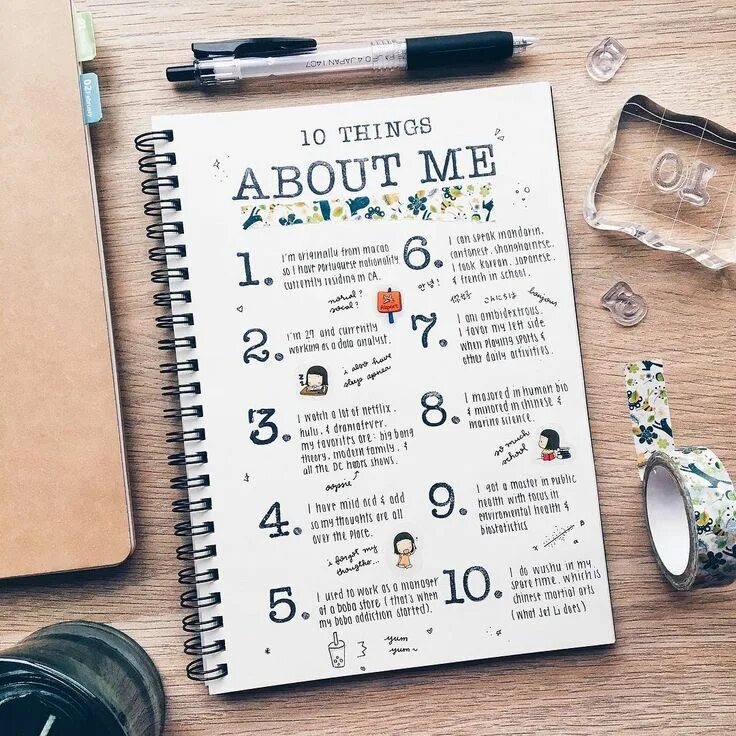 0.4 JAPAN 1407
02 February
10 THINGS
ABOUT ME
1. I'm originally from macao
so I have portuguese nationality.
currently residing in CA.
norcal?
socal?
Airport
2. I'm 29 and currently
working as a data analyst.
i also have
sleep apnea
3. I watch a lot of netflix,
hulu, & dramafever.
my favorites are: big bang
theory, modern family, &
all the DC heroes shows.
oopsie
4. I have mild ocd & add
so my thoughts are all
over the place.
i forgot my
thoughts...
5. I used to work as a manager
at a boba store (that's when
my boba addiction started).
yum
yum~
6. I can speak mandarin,
cantonese, shanghainese.
I took korean, japanese,
& french in school.
안녕! 你好 こんにちは bonjour
7. I am ambidextrous.
I favor my left side
when playing sports &
other daily activities.
8. I majored in human bio
& minored in chinese &
marine science.
so much
school
9. I got a master in public
health with focus in
environmental health &
biostatistics
x A B
10. I do wushu in my
spare time, which is
chinese martial arts
(what Jet Li does)
10